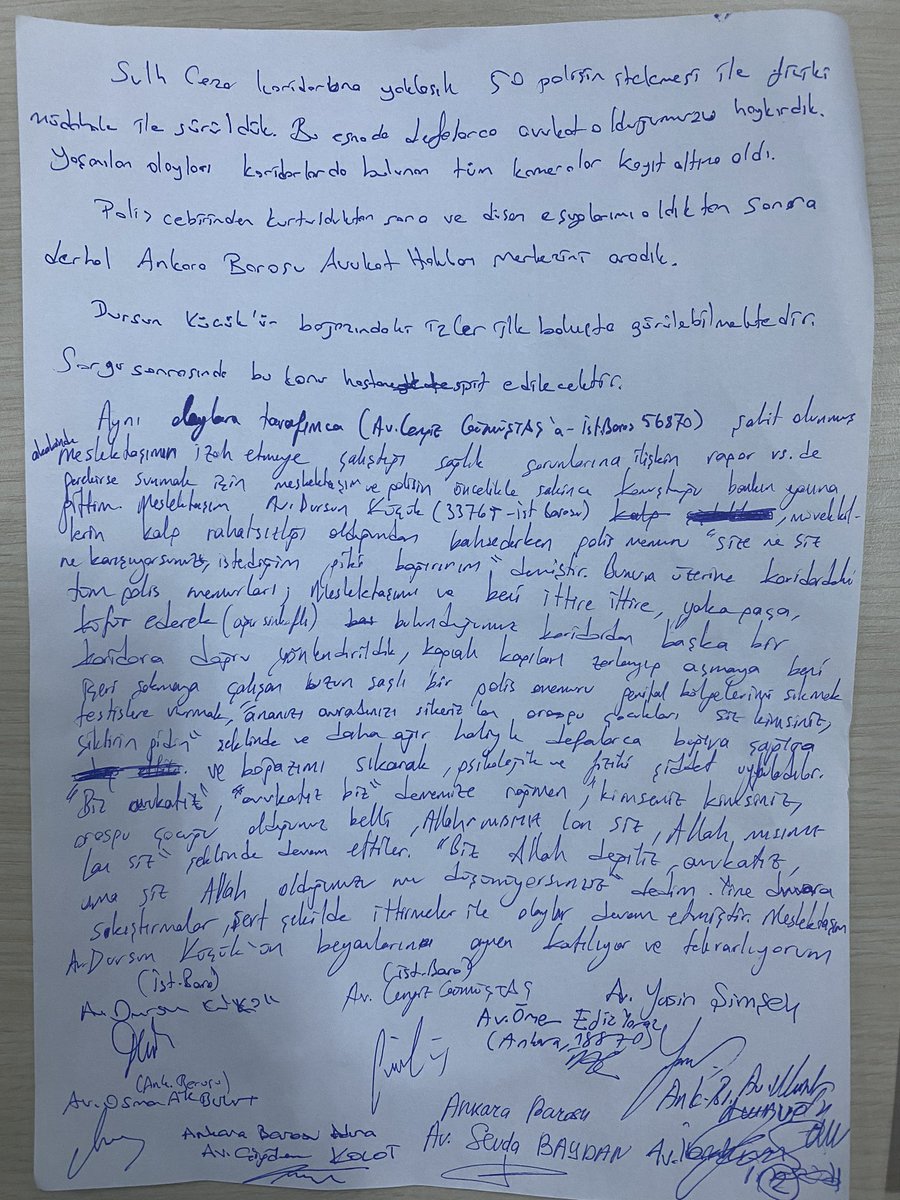 Sulh Ceza koridorlarına yaklaşık 50 polisin iteklemesi ile fiziki
müdahale ile sürüldük. Bu esnada defalarca avukat olduğumuzu haykırdık.
Yaşanılan olayları koridorlarda bulunan tüm kameralar kayıt altına aldı.
Polis cebirinden kurtulduktan sonra ve düşen eşyalarımı aldıktan sonra
derhal Ankara Barosu Avukat Hakları Merkezini aradık.
Dursun Küçük'ün boğazındaki izler ilk bakışta görülebilmektedir.
Sorgu sonrasında bu konu edilecektir.
Aynı olaylara tarafımca (Av. Cengiz GÜMÜŞTAŞ'a - ist.Baros 56870) şahit olunmuş
Meslektaşımın izah etmeye çalıştığı sağlık sorunlarına ilişkin rapor vs. de
gerekirse sunmak için meslektaşım ve polisin öncelikle sakince konuştuğu bankın yanına
gittim. Meslektaşım Av. Dursun Küçük ist Barosu) , müvekkil-
lerin kalp rahatsızlığı olduğundan bahsederken polis memuru "size ne siz
ne karışıyorsunuz, istediğim gibi bağırırım" demiştir. Bunun üzerine koridordaki
tüm polis memurları; Meslektaşımı ve beni ittire ittire, yaka paça,
küfür ederek (ağır sinkaflı) bulunduğumuz koridordan başka bir
koridora doğru yönlendirildik, kapalı kapıları zorlayıp açmaya beni
içeri sokmaya çalışan uzun saçlı bir polis memuru genital bölgelerimi sıkmak
testislere vurmak, "ananızı avradınızı sikeriz lan orospu çocukları siz kimsiniz,
siktirin gidin" şeklinde ve daha ağır haliyle defalarca bağıra çağıra
ve boğazımı sıkarak, psikolojik ve fiziki şiddet uyguladılar.
"Biz avukatız", "avukatız biz" dememize rağmen, "kimseniz kimsiniz,
orospu çocuğu olduğunuz belli, Allah mısınız lan siz, Allah mısınız
lan siz" şeklinde devam ettiler. "Biz Allah değiliz, avukatız,
ama siz Allah olduğunuzu mu düşünüyorsunuz" dedim. Yine duvara
sıkıştırmalar, sert şekilde ittirmeler ile olaylar devam etmiştir. Meslektaşım
Av. Dursun Küçük'ün beyanlarına aynen katılıyor ve tekrarlıyorum
(ist. Baro) (ist. Baro)
Av. Dursun KÜÇÜK Av. Cengiz GÜMÜŞTAŞ Av. Yasin Şimşek
Av. Ömer Ediz
(Ankara, 18870)
(Ank. Barosu)
Av. Osman Akbulut Ank.
Ankara Barosu Adına Ankara Barosu
Av. Çiğdem KOLOT Av. Sevda BAYDAN Av.